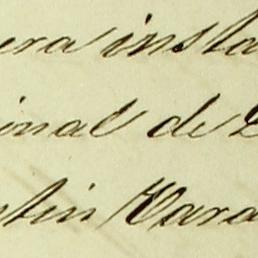 era insta
inal de L
ntin Vara